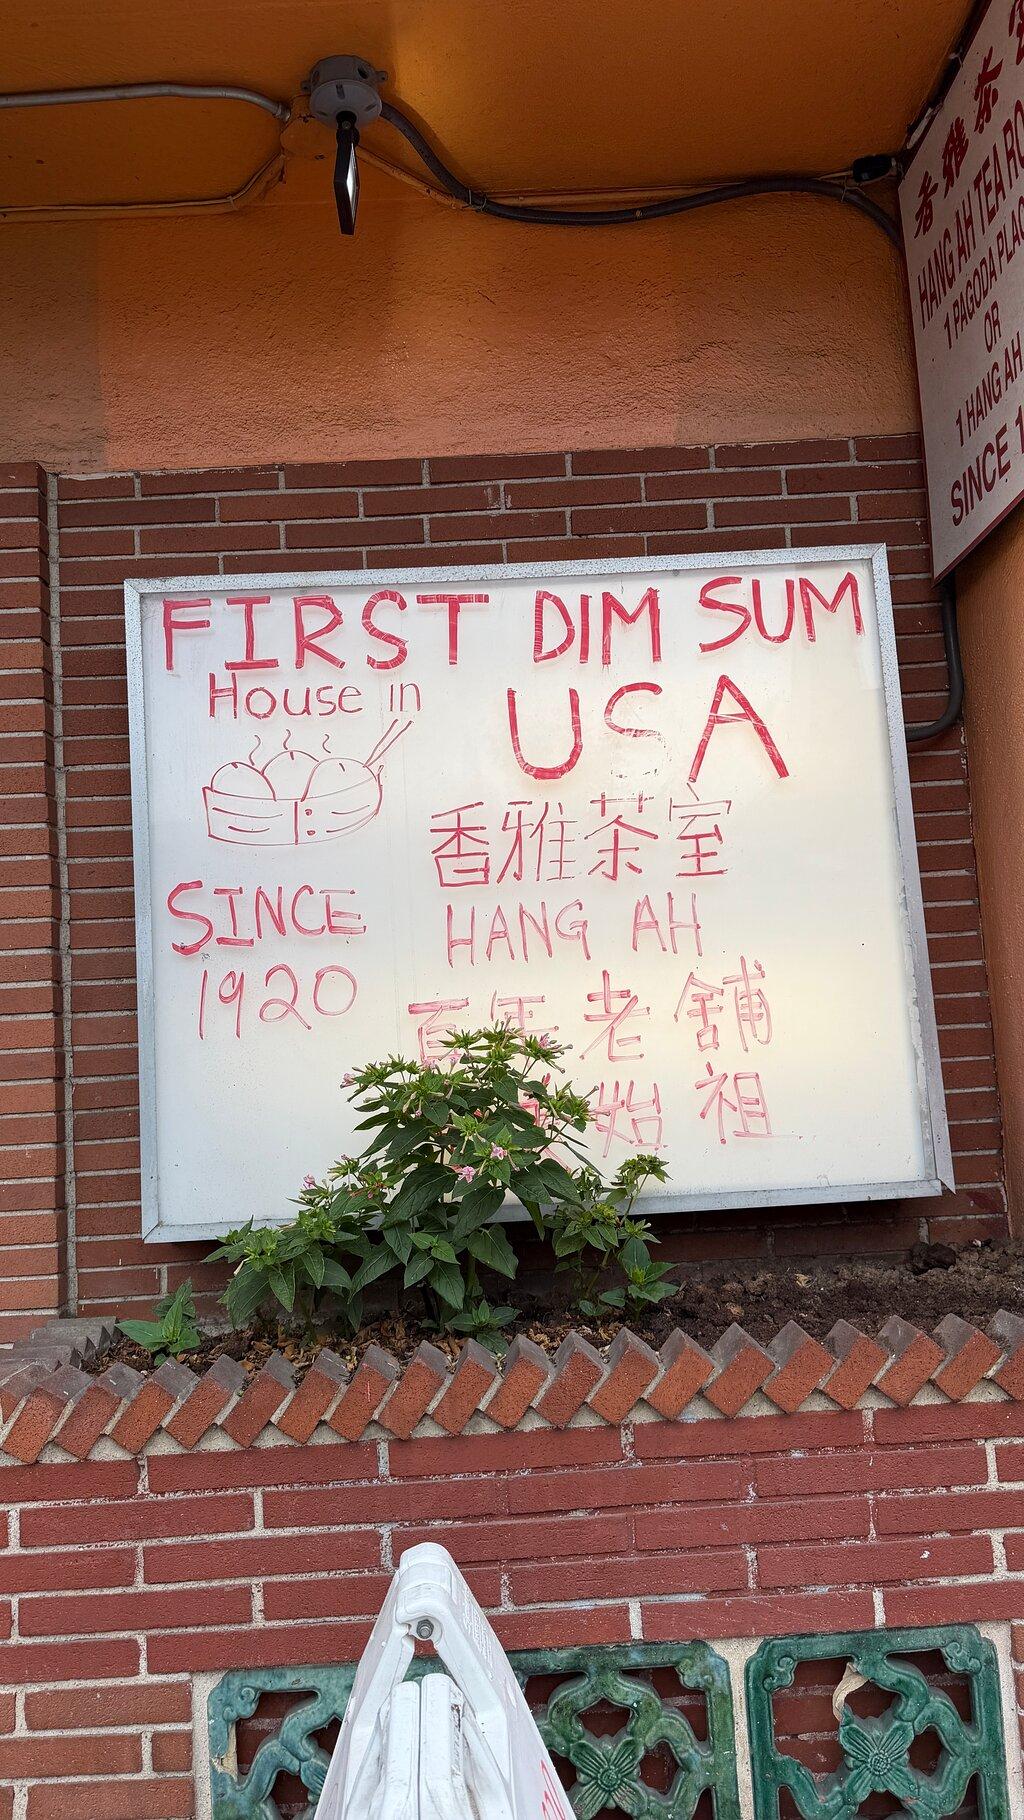 FIRST DIM SUM
House in USA
香雅茶室
SINCE
HANG AH
1920
百年老舖
始祖
香雅茶
HANG AH TEA
1 PAGODA
OR
1 HANG AH
SINCE